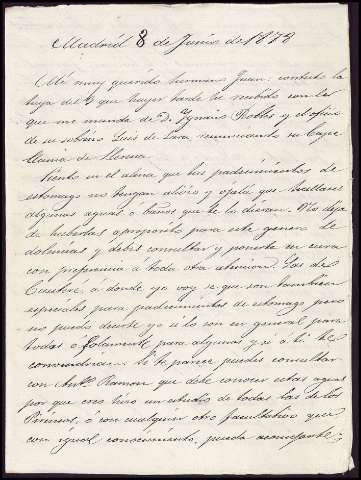 Madrid 8 de Junio de 1878
Mi muy querido hermano Juan: contesto la
tuya del 4 que hayer tarde he recibido con la
que me manda de D. Ygnacio Robles y el oficio
de su sobrino Luis de Lara, renunciando su Cape
llania de Llerena
Siento en el alma que tus padecimientos de
estomago no tengan alivio y ojalá que hallases
algunas aguas o baños que te lo dieran. No deja
de haberlas a proposito para este genero de
dolencias y debes consultar y ponerte en cura
con preferencia á toda otra atencion. Las de
á donde yo voy se que son tambien
especiales para padecimientos de estomago pero
no puedo decirte yo si lo son en general para
todas o solamente para algunas y si a ti te
convendrian. Si te parece puedes consultar
con Antº Ramon que debe conocer estas aguas
por que creo hizo un estudio de todas las de los
Pirineos, ó con cualquier otro facultativo que
con igual conocimiento, pueda aconsejarte;